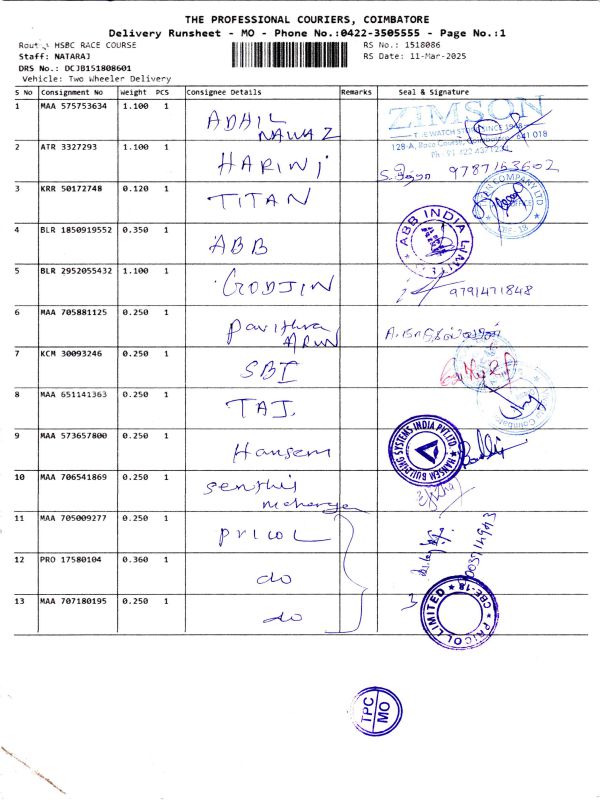 THE PROFESSIONAL COURIERS, COIMBATORE
Delivery Runsheet - MO - Phone No.:0422-3505555 - Page No.:1
Route: HSBC RACE COURSE
RS No.: 1518086
Staff: NATARAJ
RS Date: 11-Mar-2025
DRS No.: DCJB151808601
Vehicle: Two Wheeler Delivery
S No Consignment No Weight PCS Consignee Details Remarks Seal & Signature
1 MAA 575753634 1.100 1 ADHIL NAWAZ
ZIMSON
THE WATCH STORE SINCE 1948
128-A, Race Course, Coimbatore - 641 018
2 ATR 3327293 1.100 1 HARINI 9787163602
3 KRR 50172748 0.120 1 TITAN
COMPANY LTD
CBE-18
4 BLR 1850919552 0.350 1 ABB
ABB INDIA LIMITED
5 BLR 2952055432 1.100 1 GODJIN 9791471848
6 MAA 705881125 0.250 1 Pavithra ARUN
7 KCM 30093246 0.250 1 SBI
8 MAA 651141363 0.250 1 TAJ.
Coimbatore
9 MAA 573657800 0.250 1 Hansem
HANSEM BUILDING SYSTEMS INDIA PVT LTD
10 MAA 706541869 0.250 1
11 MAA 705009277 0.250 1 PRICOL
12 PRO 17580104 0.360 1 do
13 MAA 707180195 0.250 1 do
3
PRICOL LIMITED
CBE-18
TPC
MO